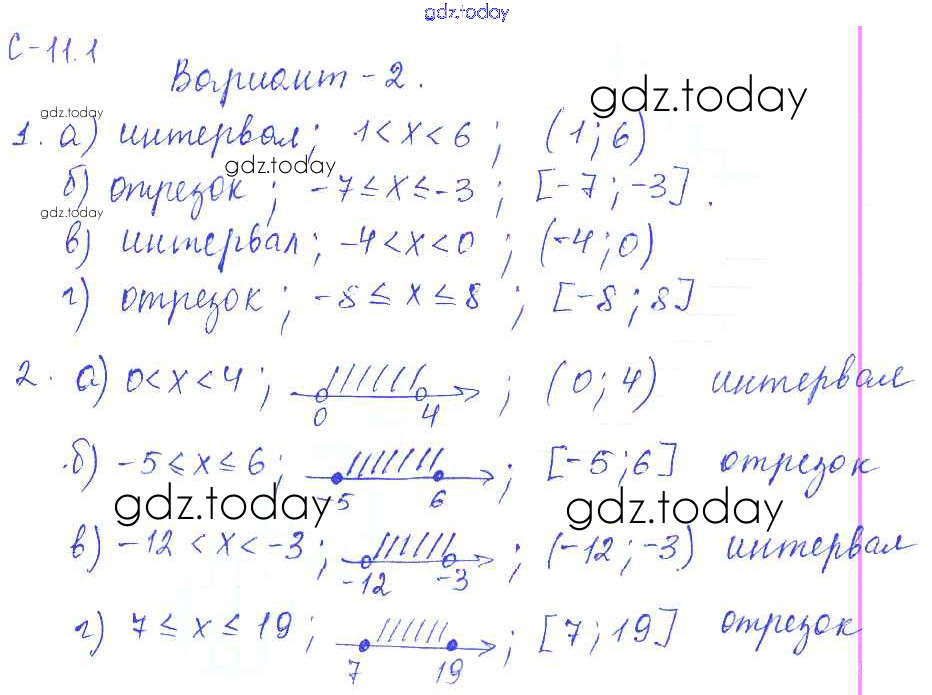 gdz.today
С-11.1
Вариант-2.
gdz.today
gdz.today
1. а) интервал; 1 < x < 6 ; (1; 6)
gdz.today
б) отрезок ; -7 ≤ x ≤ -3 ; [-7 ; -3] .
gdz.today
в) интервал ; -4 < x < 0 ; (-4 ; 0)
г) отрезок ; -8 ≤ x ≤ 8 ; [-8 ; 8]
2. а) 0 < x < 4 ; 0 4 ; (0; 4) интервал
б) -5 ≤ x ≤ 6 ; -5 6 ; [-5 ; 6] отрезок
gdz.today gdz.today
в) -12 < x < -3 ; -12 -3 ; (-12 ; -3) интервал
г) 7 ≤ x ≤ 19 ; 7 19 ; [7 ; 19] отрезок